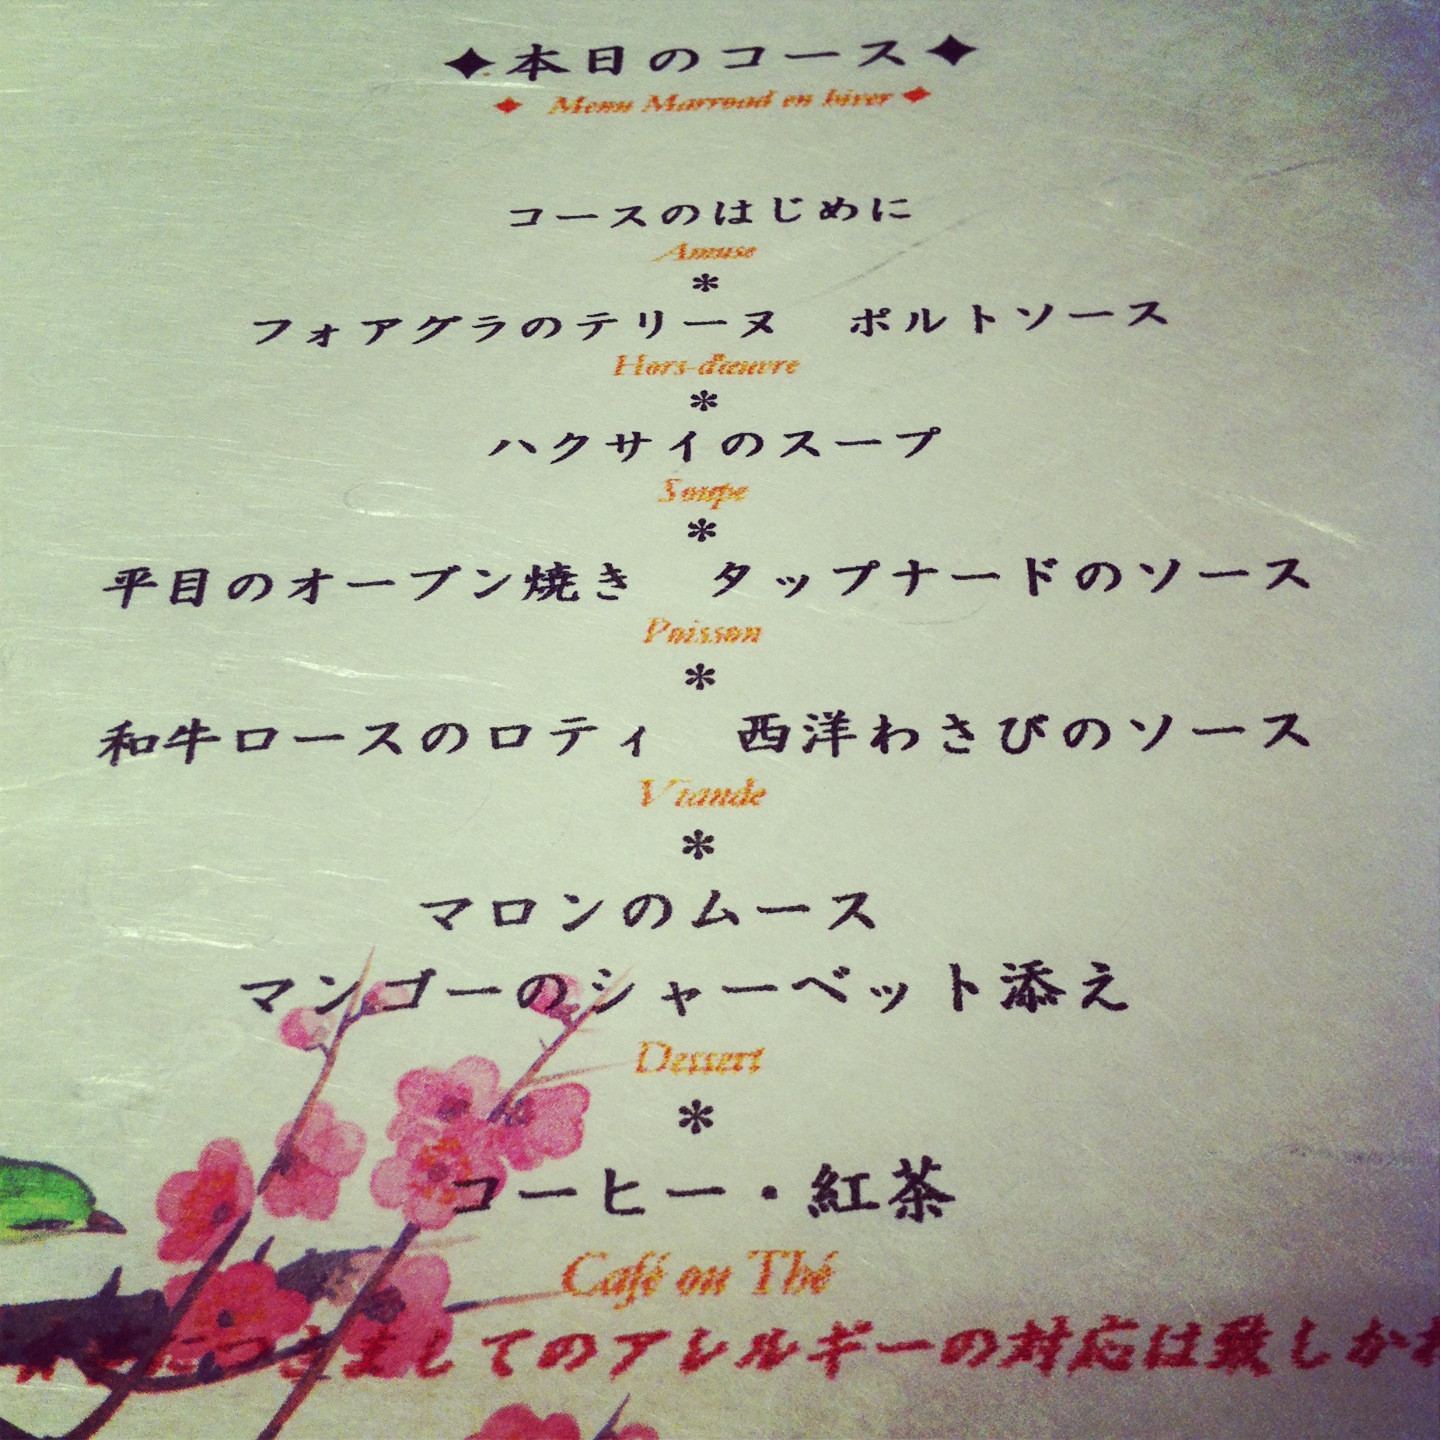 ✦本日のコース✦
✦ Menu Marroad en hiver ✦
コースのはじめに
Amuse
*
フォアグラのテリーヌ ポルトソース
Hors-d'œuvre
*
ハクサイのスープ
Soupe
*
平目のオーブン焼き タップナードのソース
Poisson
*
和牛ロースのロティ 西洋わさびのソース
Viande
*
マロンのムース
マンゴーのシャーベット添え
Dessert
*
コーヒー・紅茶
Café ou Thé
につきましてのアレルギーの対応は致しかね